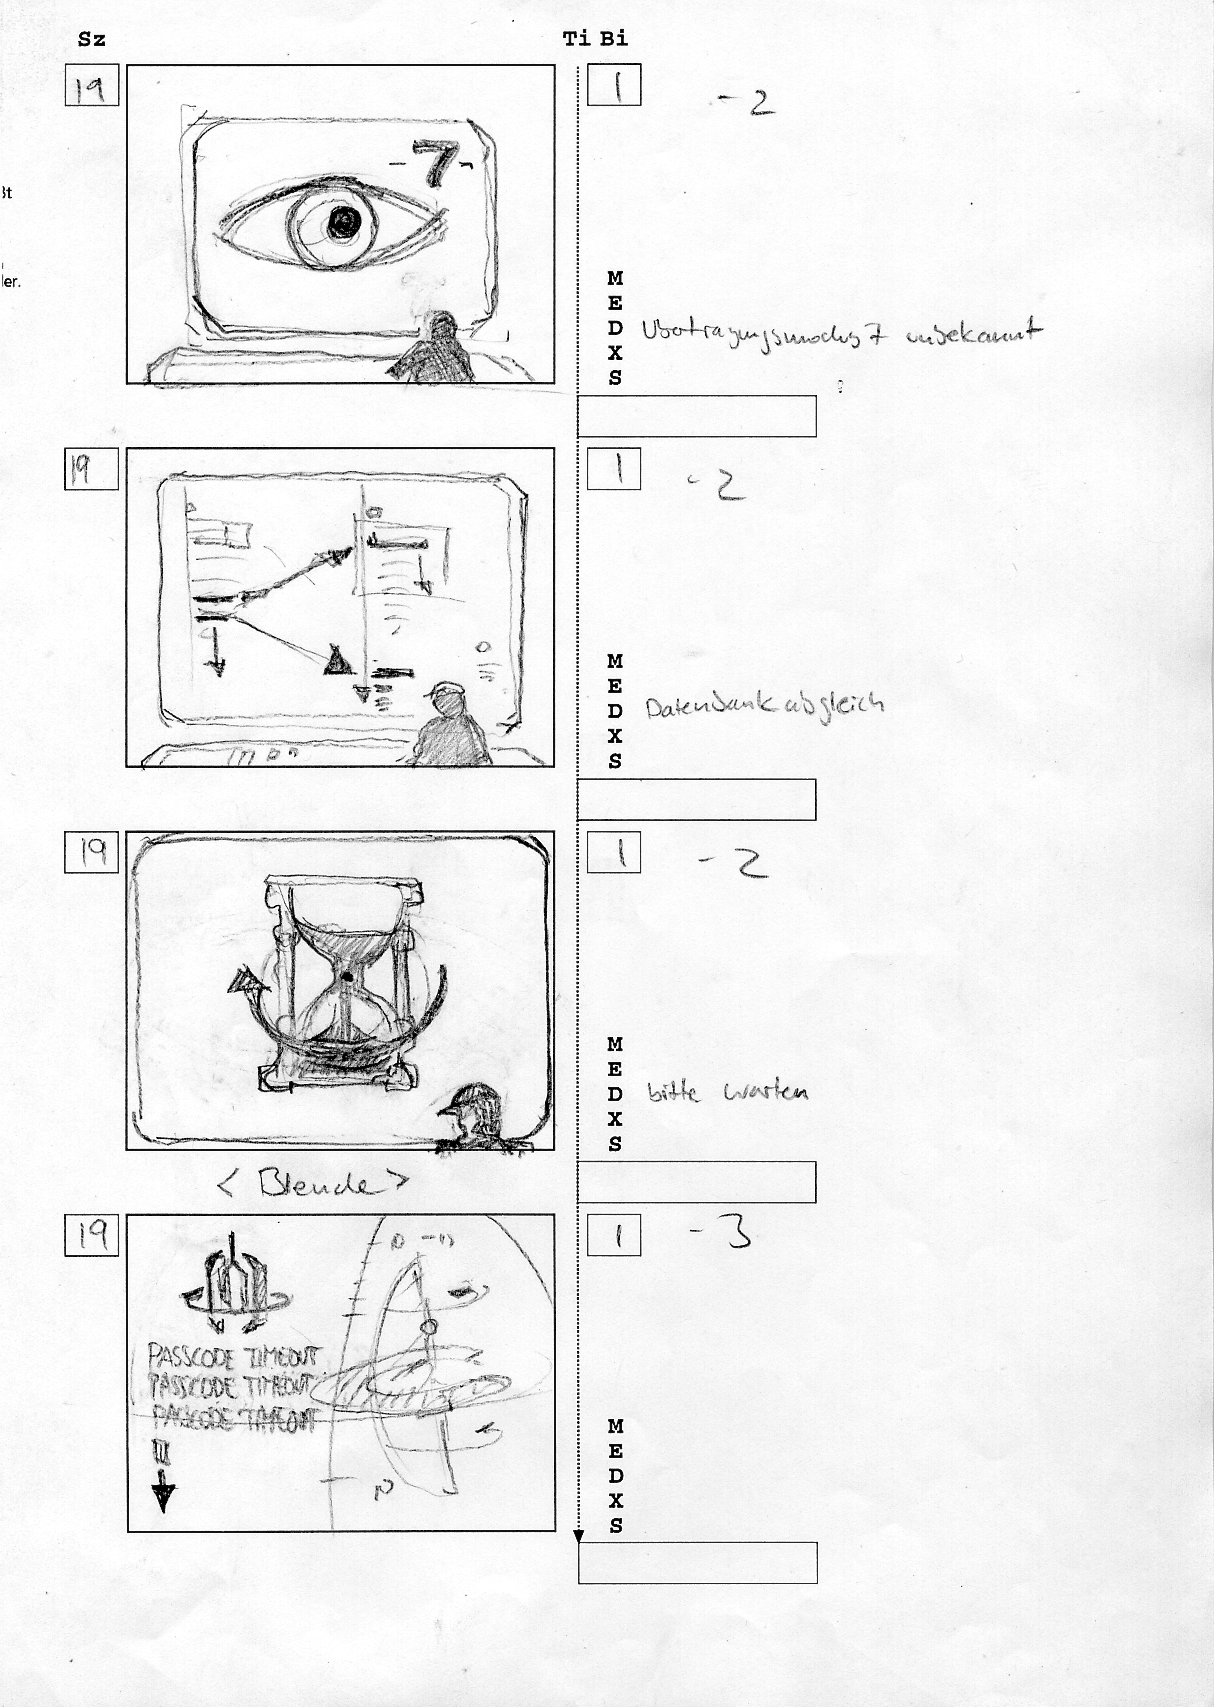 Sz Ti Bi
19 1 -2
-7-
ßt
ler.
M
E
D Übertragungsmodus 7 unbekannt
X
S
19 1 -2
M
E
D Datenbankabgleich
X
S
19 1 -2
M
E
D bitte warten
X
S
< Blende >
19 1 -3
PASSCODE TIMEOUT
PASSCODE TIMEOUT
PASSCODE TIMEOUT
M
E
D
X
S